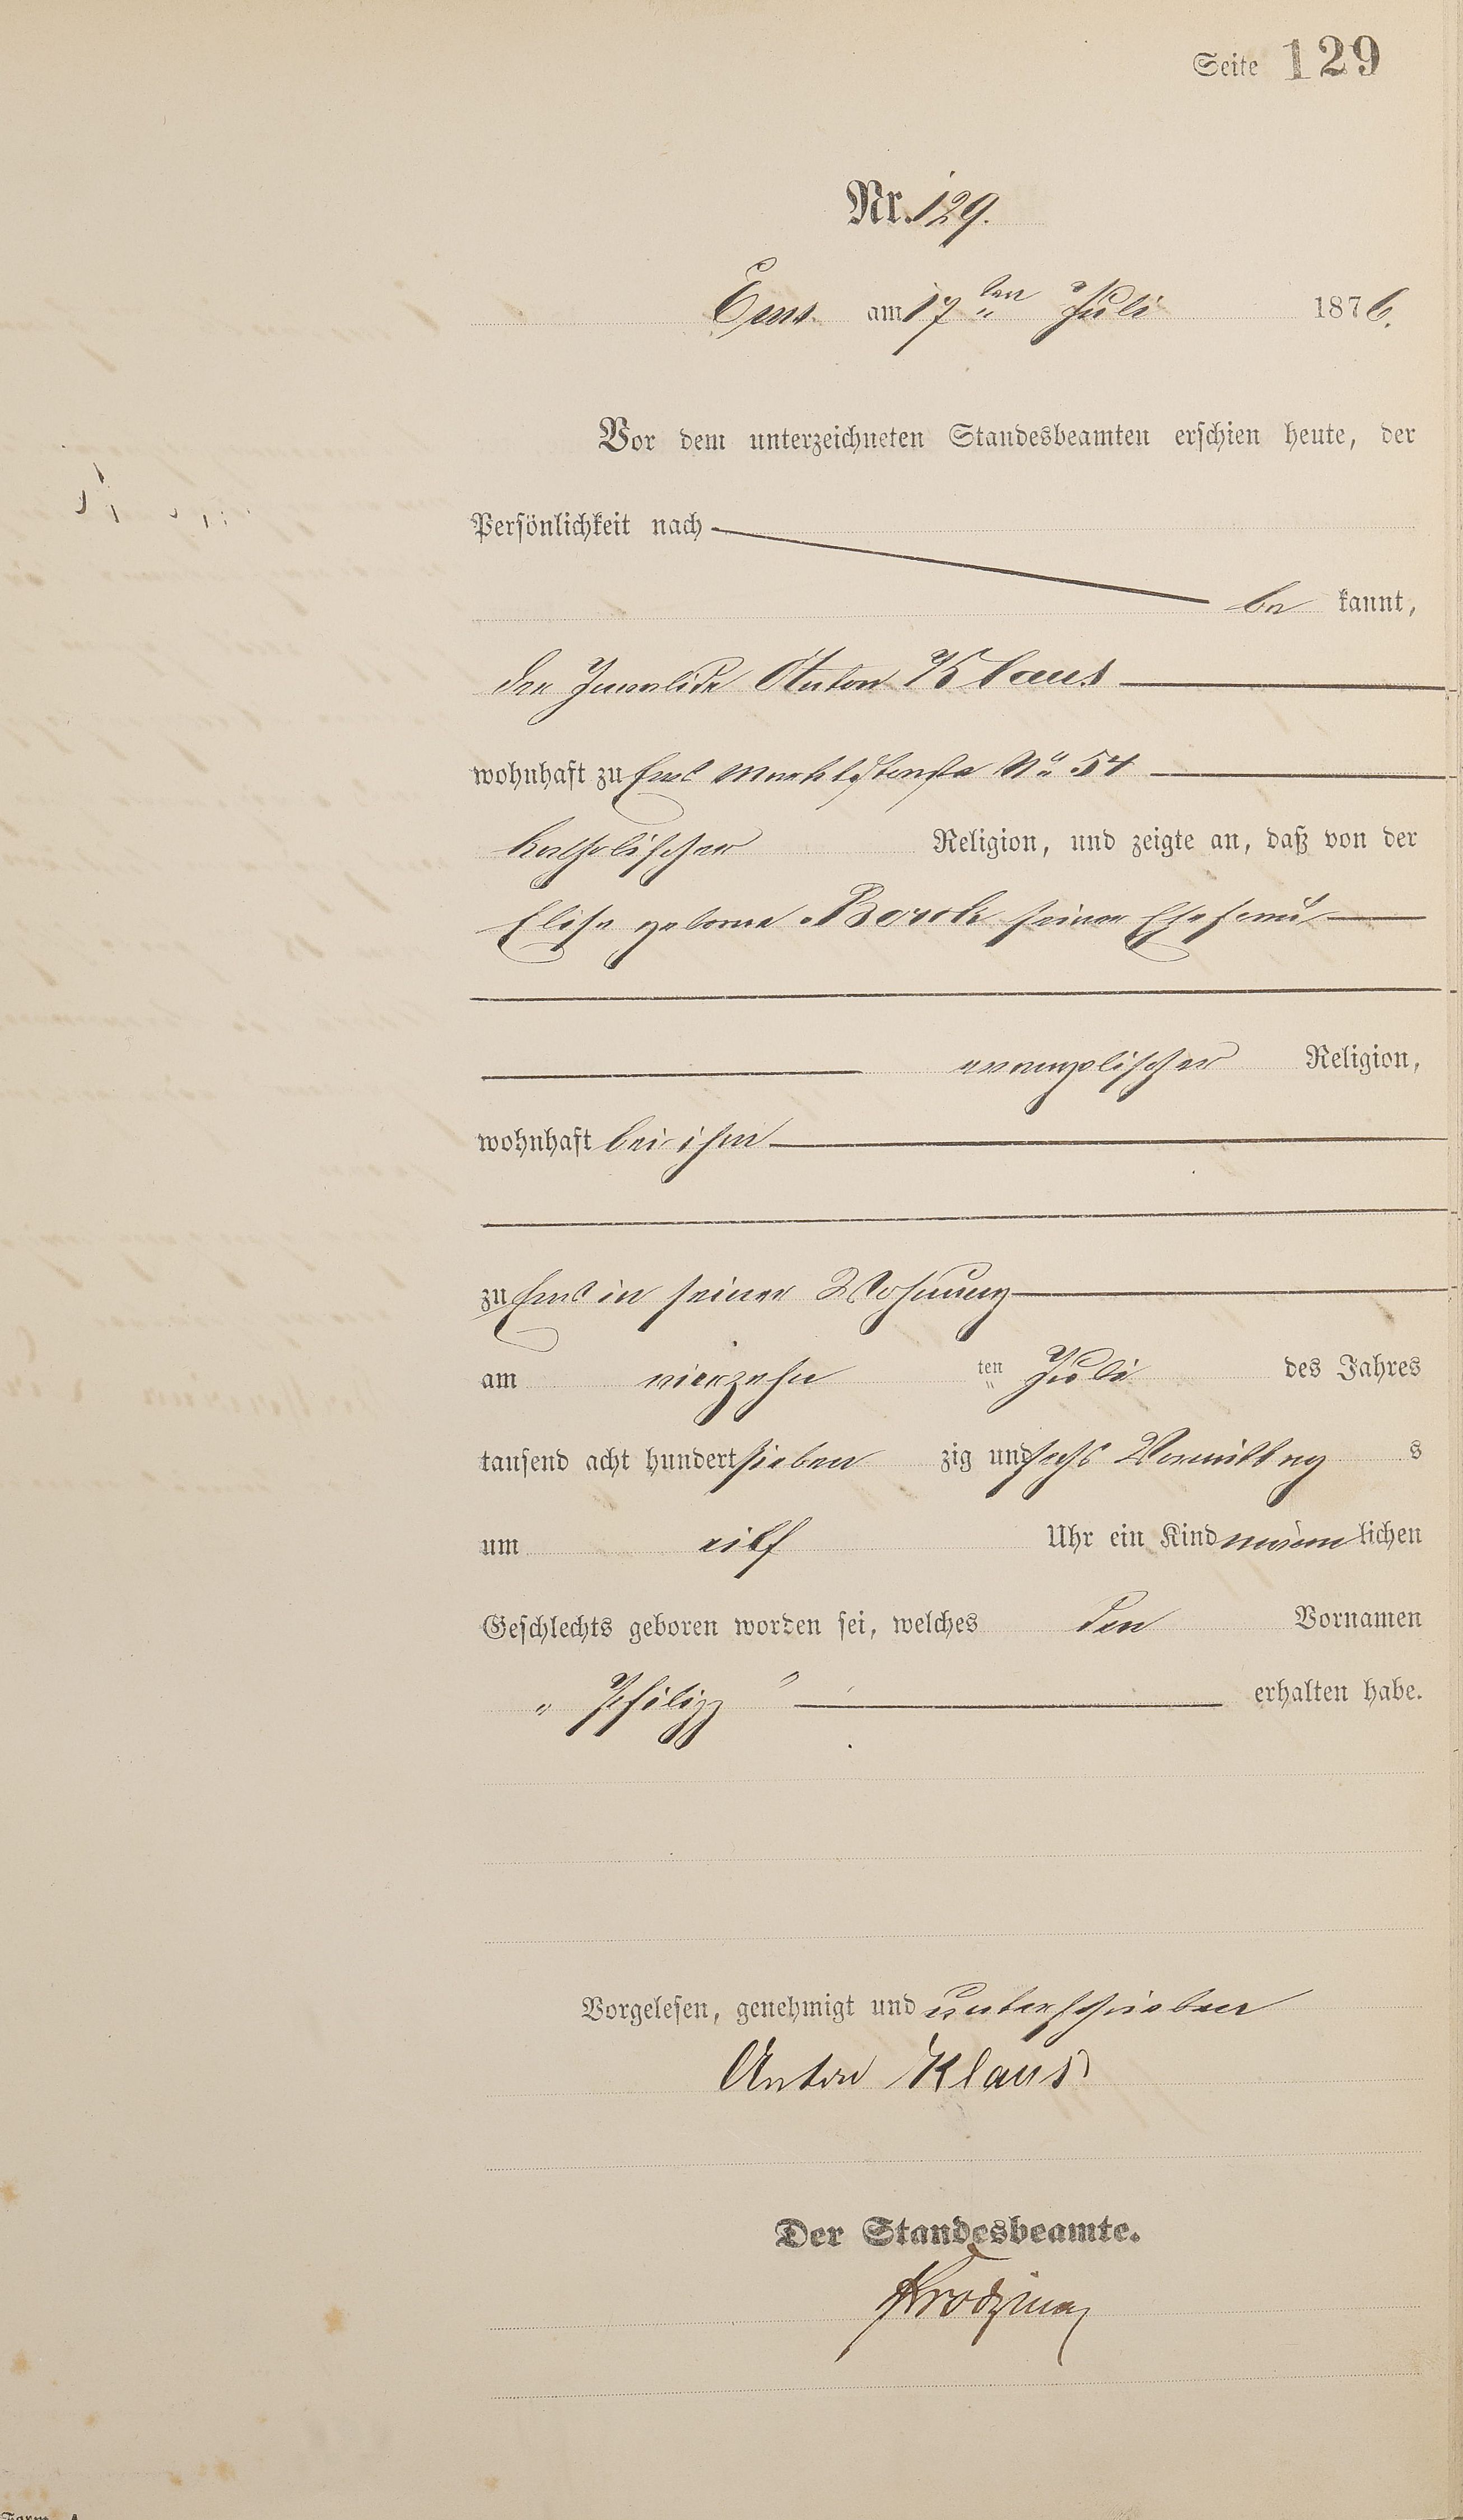 Seite 129
Nr. 129.
Ems am 17ten Juli 1876.
Vor dem unterzeichneten Standesbeamten erschien heute, der
Persönlichkeit nach
be kannt,
der Invalide Anton Klaus
wohnhaft zu Ems Marktstraße No 54
katholischer Religion, und zeigte an, daß von der
Elise geborne seiner Ehefrau
evangelischer Religion,
wohnhaft bei ihm
zu Ems in seiner Wohnung
am vierzehn ten Juli des Jahres
tausend acht hundert sieben zig und sechs Vormittag s
um eilf Uhr ein Kind männ lichen
Geschlechts geboren worden sei, welches den Vornamen
„ Philipp " erhalten habe.
Vorgelesen, genehmigt und unterschrieben
Anton Klaus
Der Standesbeamte.